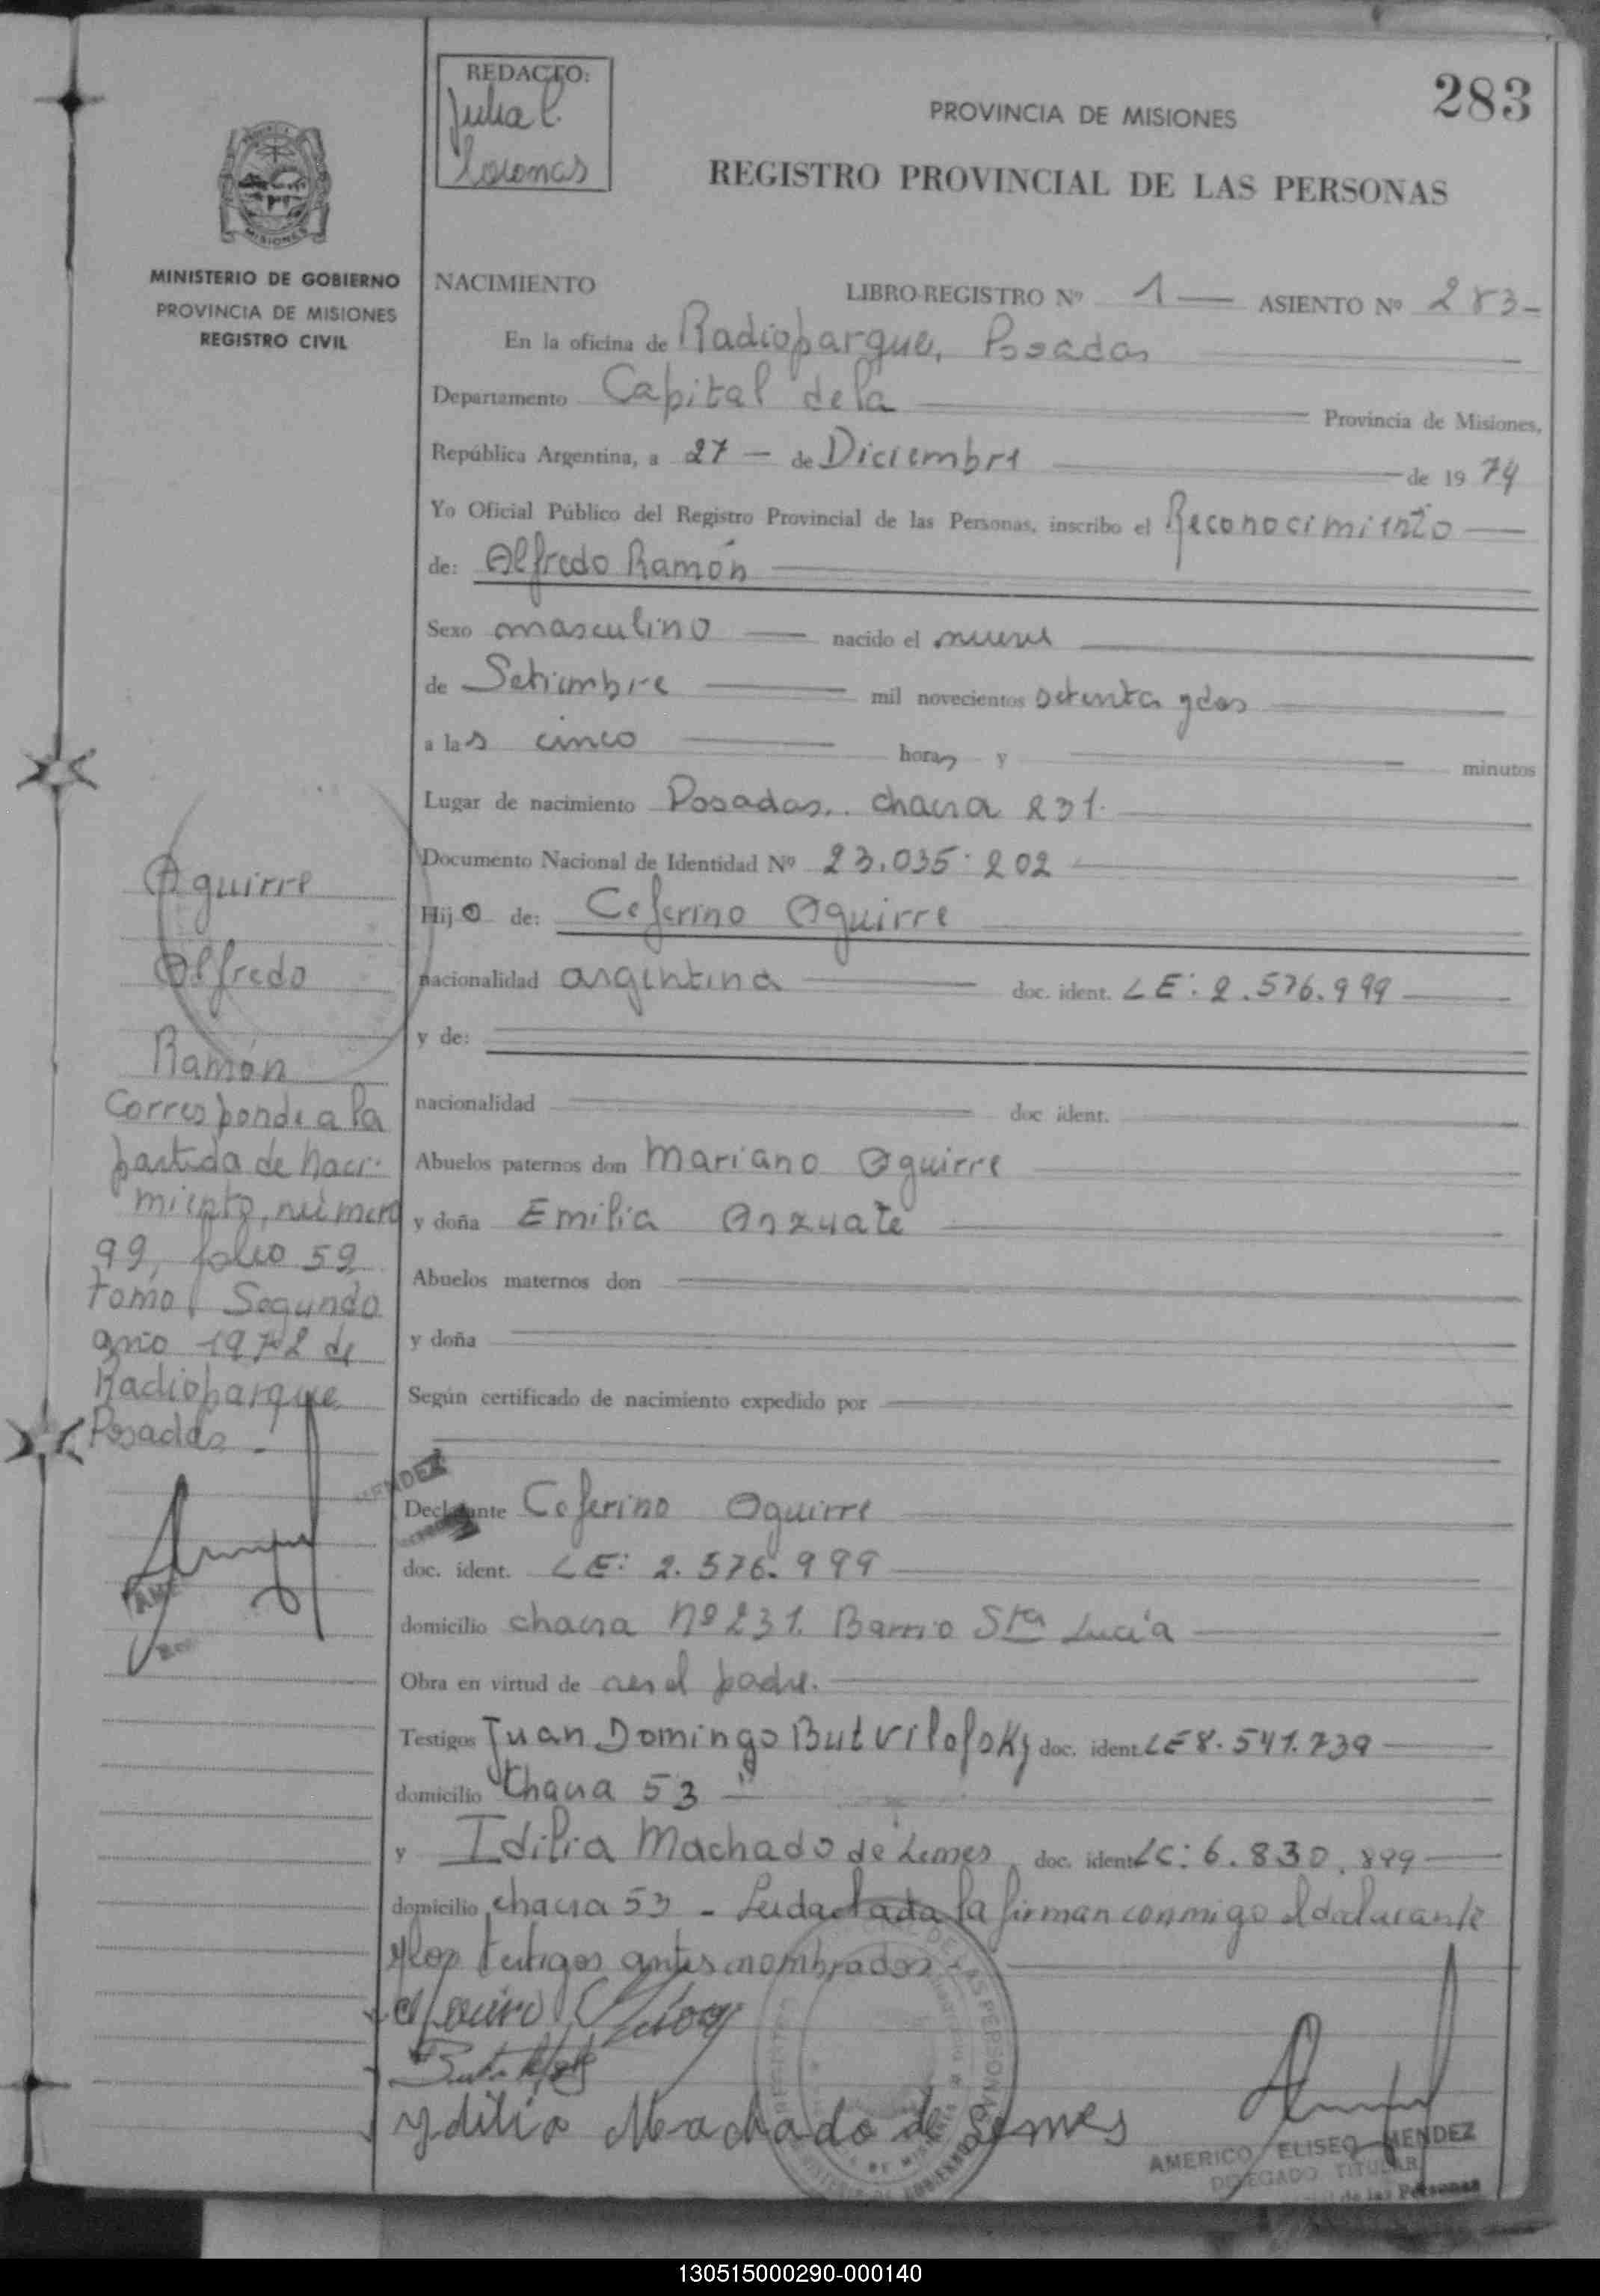 REDACTO:
Julia C.
283
PROVINCIA DE MISIONES
REGISTRO PROVINCIAL DE LAS PERSONAS
MISIONES
MINISTERIO DE GOBIERNO
PROVINCIA DE MISIONES
REGISTRO CIVIL
NACIMIENTO
LIBRO REGISTRO Nº 1 — ASIENTO Nº 283-
En la oficina de Radioparque, Posadas
Departamento Capital de la Provincia de Misiones,
República Argentina, a 27 — de Diciembre de 1974
Yo Oficial Público del Registro Provincial de las Personas, inscribo el Reconocimiento
de: Alfredo Ramón
Sexo masculino — nacido el nueve
de Setiembre — mil novecientos setenta y dos
a las cinco — horas y — minutos
Lugar de nacimiento Posadas.. chacra 231.
Documento Nacional de Identidad Nº 23.035.202
Hijo de: Ceferino Aguirre
nacionalidad argentina — doc. ident. LE: 2.576.999
y de:
nacionalidad — doc ident.
Abuelos paternos don Mariano Aguirre
y doña Emilia Anzuate
Abuelos maternos don
y doña
Según certificado de nacimiento expedido por
Declarante Ceferino Aguirre
doc. ident. LE: 2.576.999
domicilio chacra Nº 231. Barrio Sta Lucía
Obra en virtud de ser el padre.
Testigos Juan Domingo Butvilofsky doc. ident. LE 8.541.739
domicilio Chacra 53
y Idilia Machado de Lemes doc. ident. LC: 6.830.899
domicilio chacra 53 - Leida el acta la firman conmigo el declarante
y los testigos antes nombrados
Ydilia Machado de Lemes
AMERICO ELISEO MENDEZ
DELEGADO TITULAR
de las Personas
Aguirre
Alfredo
Ramón
Corresponde a la
partida de naci-
miento, número
99, folio 59
tomo Segundo
año 1972 de
Radioparque
Posadas.
MENDEZ
130515000290-000140